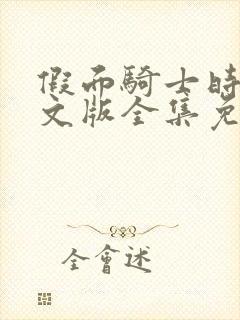 假而騎士時
文版全集免
全會述